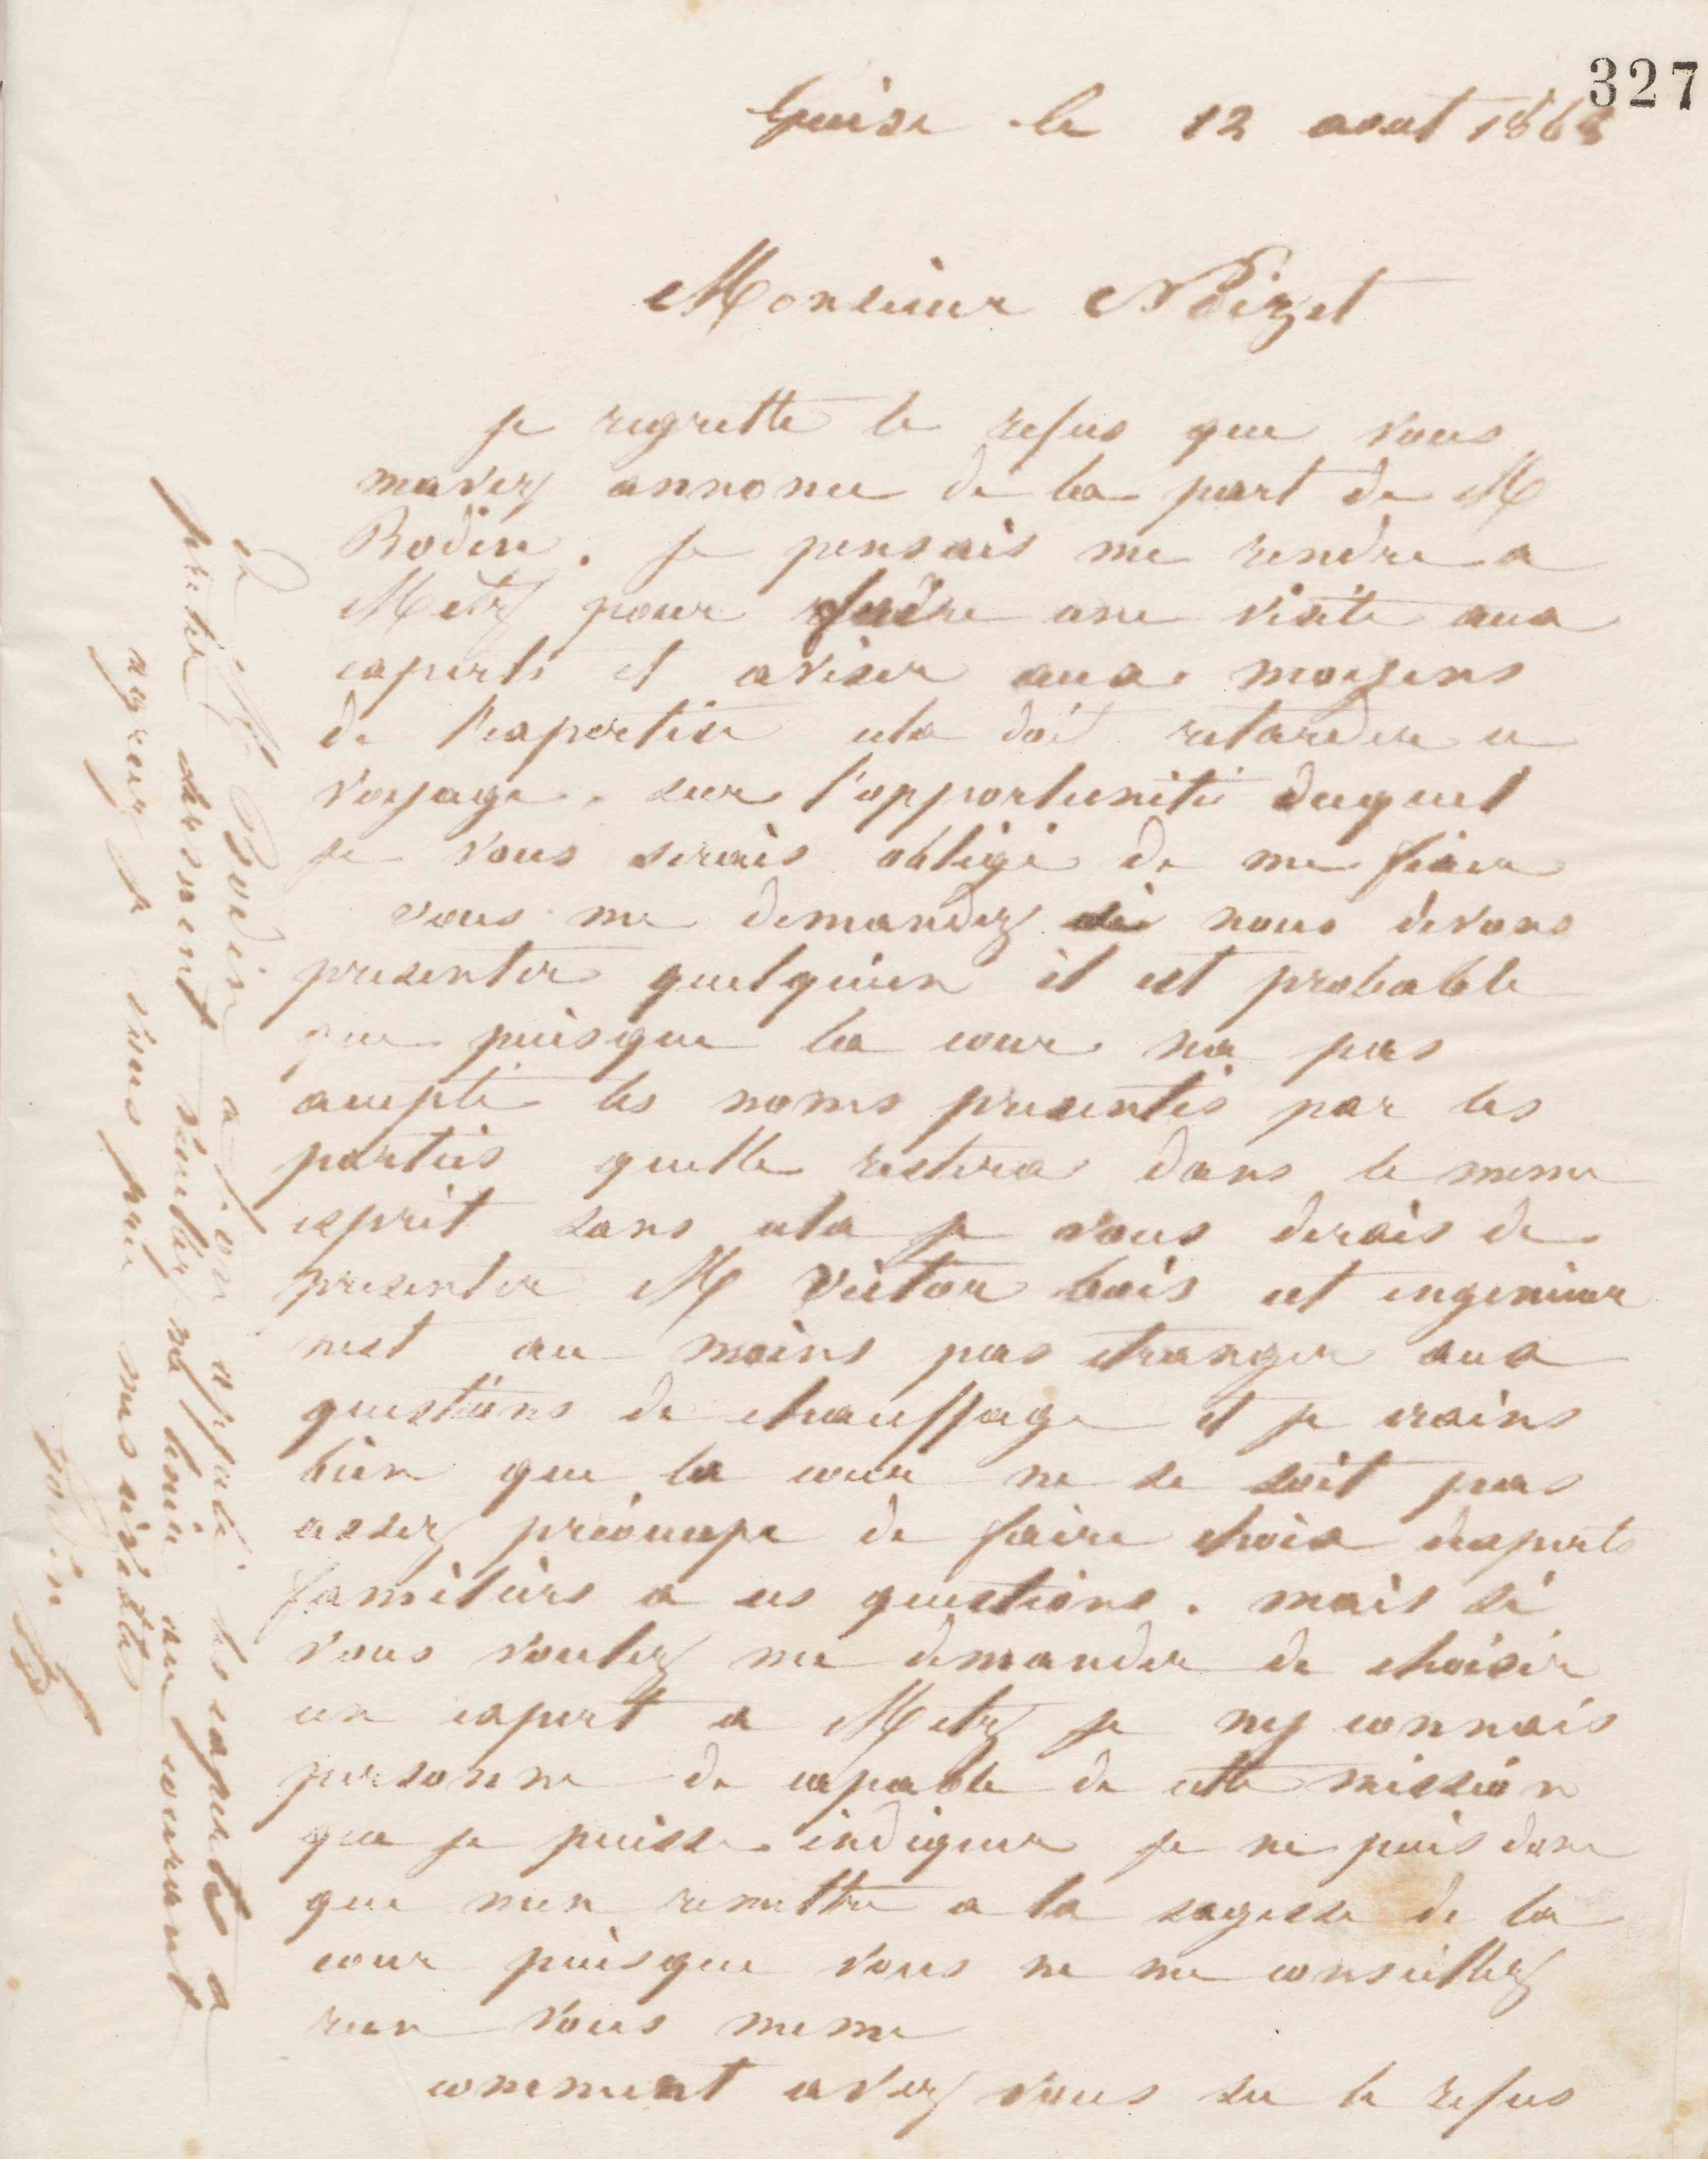 327
Guise le 12 aout 1868
Monsieur Noizet
Je regrette le refus que vous
mavez annonce de la part de M
Bodin. Je pensais me rendre a
Metz pour faire une visite aux
experts et aviser aux moyens
de l'expertise cela doit retarder ce
voyage. sur l'opportunité duquel
je vous serais obligé de me fixer
vous me demandez si nous devons
presenter quelquun il est probable
que puisque la cour na pas
accepté les noms presentés par les
parties quelle restera dans le meme
esprit sans cela je vous dirais de
presenter M Victor bois cet ingenieur
nest au moins pas etranger aux
questions de chauffage et je crains
bien que la cour ne se soit pas
assez préoccupe de faire choix dexperts
familiers a ces questions. mais si
vous voulez me demander de choisir
un expert a Metz je ny connais
personne de capable de cette mission
que je puisse indiquer je ne puis donc
que men remettre a la sagesse de la
cour puisque vous ne me conseillez
rien vous meme
comment avez vous su le refus
de M Bodin a-t-on appelé les experts a
preter serment veuillez me tenir au courant
agreez je vous prie mes civilités
Godin